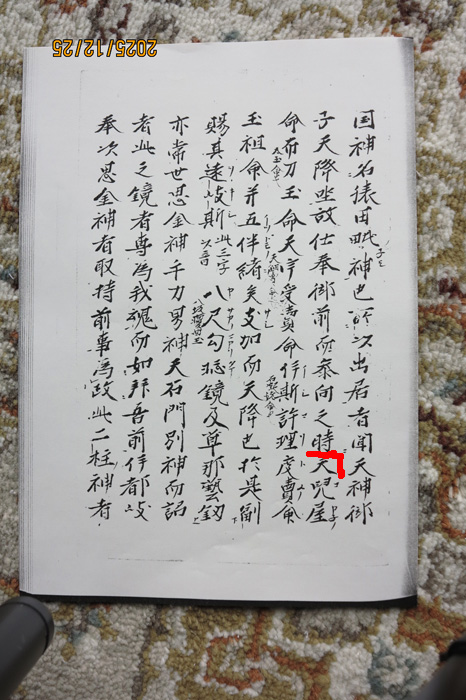 国神名猿田毗神也所以出居者聞天神御
子天降坐故仕奉御前而参向之時天兒屋
命布刀玉命天宇受賣命伊斯許理度賣命
玉祖命并五伴緒矣支加而天降也於是副
賜其遠岐斯此三字以音八尺勾璁鏡及草那藝釼
亦常世思金神千力男神天石門別神而詔
者此之鏡者専為我魂而如拝吾前伊都岐
奉次思金神者取持前事為政此二柱神者
2025/12/25